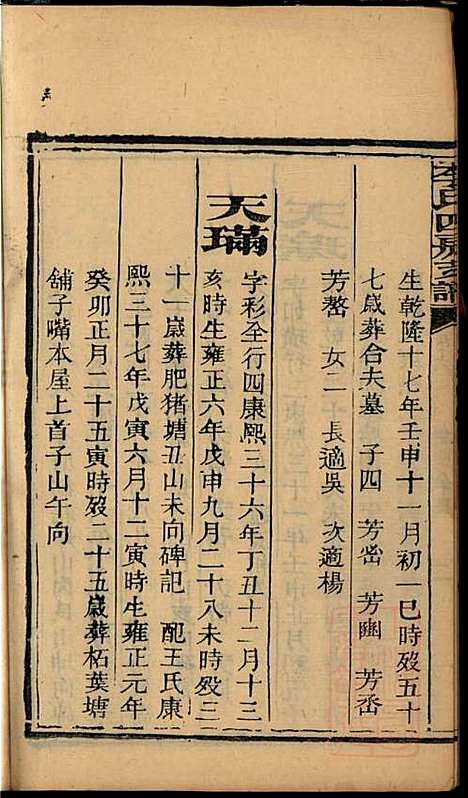 李氏四房支譜
生乾隆十七年壬申十一月初一巳時歿五十
七歲葬合夫墓　子四　芳峦　芳幽　芳岙
芳嶅　女二　長適吳　次適楊
天璊
字彩全行四康熙三十六年丁丑十二月十三
亥時生雍正六年戊申九月二十八未時歿三
十一歲葬肥猪塘丑山未向碑記　配王氏康
熙三十七年戊寅六月十二寅時生雍正元年
癸卯正月二十五寅時歿二十五歲葬柘葉塘
舖子嘴本屋上首子山午向